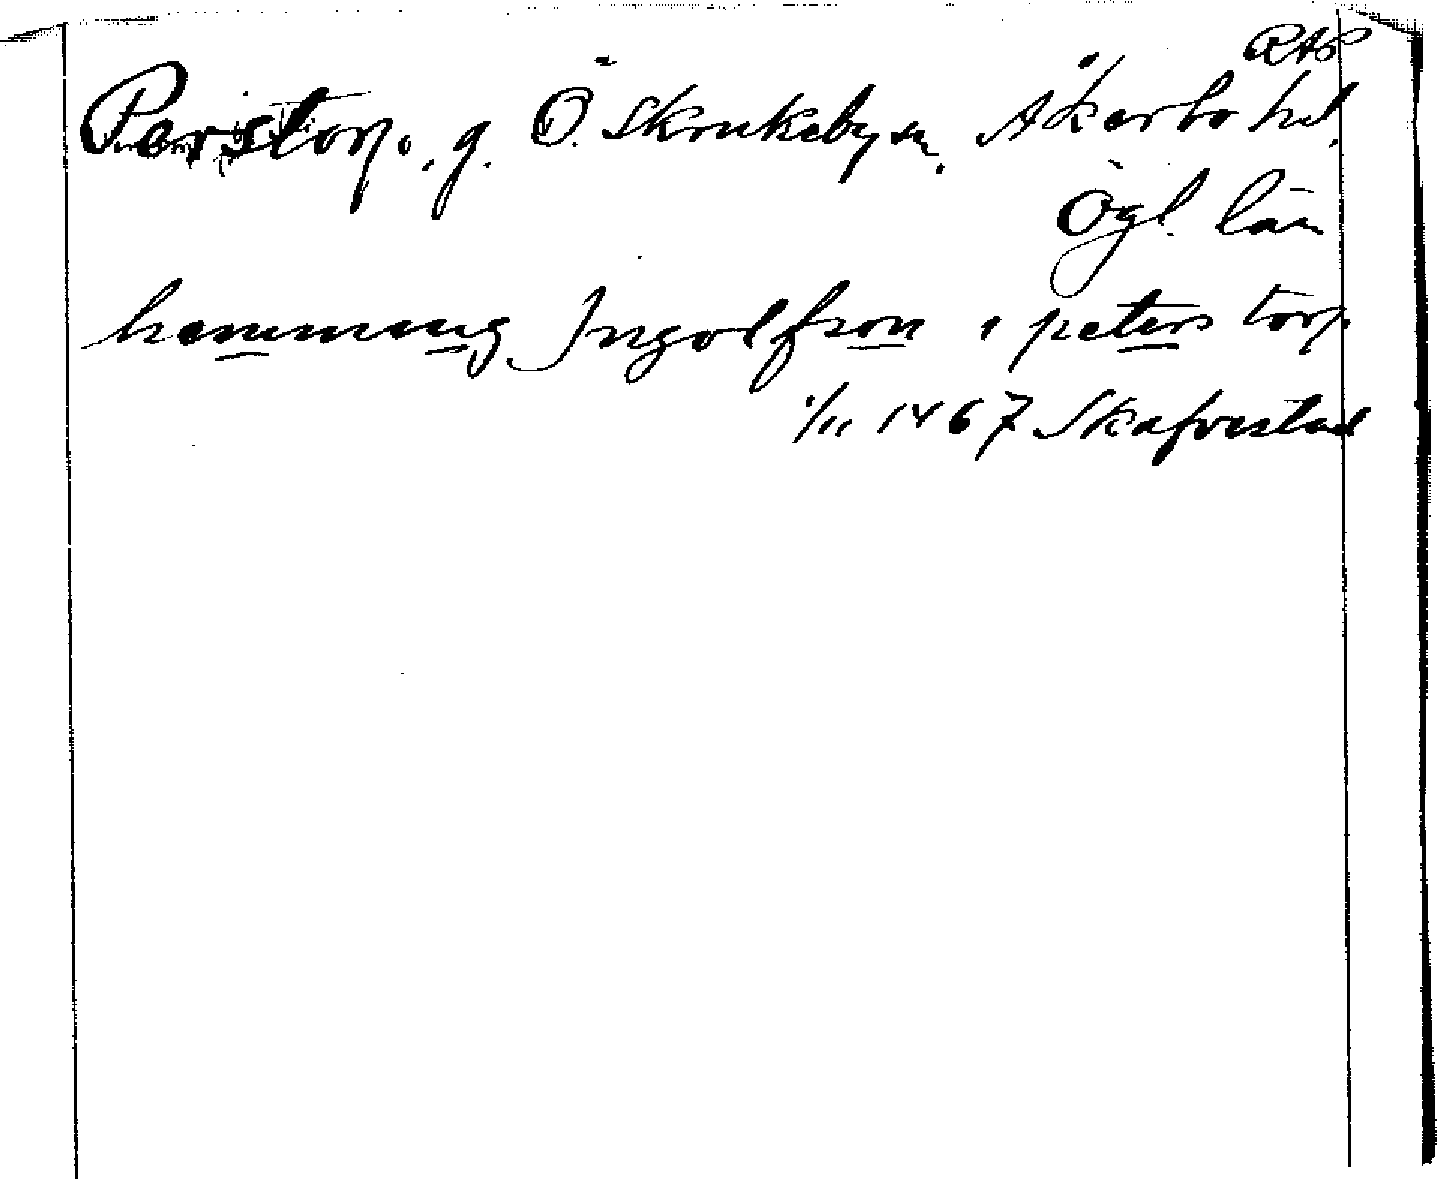 RAP
Perstorp. g. Ö. Skrukeby sn. Åkerbo hd.
Ögl. län
hemming Ingolfson i peters torp
1/11 1467 Skafvestad